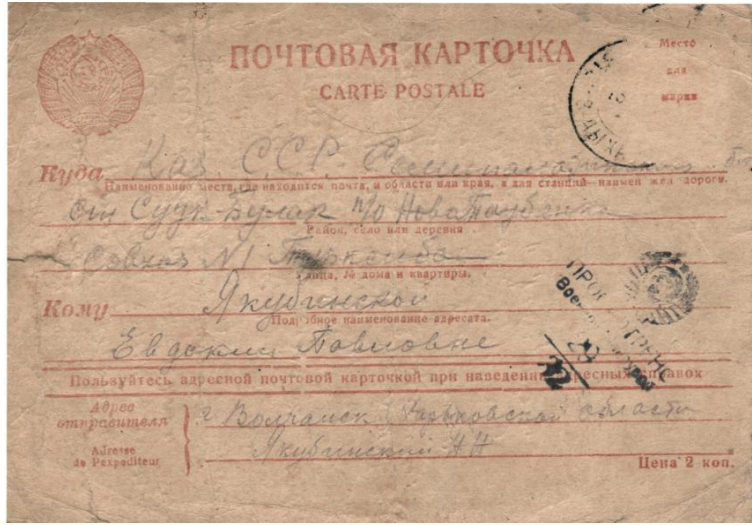 ПОЧТОВАЯ КАРТОЧКА
CARTE POSTALE
Место
для
марки
Куда Каз. С.С.Р. Семипалатинская
Наименование места, где находится почта, и области или края, а для станций наимен жел дороги.
ст Суук-Булак п/о
Район, село или деревня
Совхоз N1
Улица, № дома и квартиры.
Кому Якубинской
Подробное наименование адресата.
Евдокии Павловне
Пользуйтесь адресной почтовой карточкой при наведении адресных справок
Адрес
отправителя
г Волчанск Харьковской области
Якубинский Н Н
Adresse
de l'expediteur
Цена 2 коп.
22